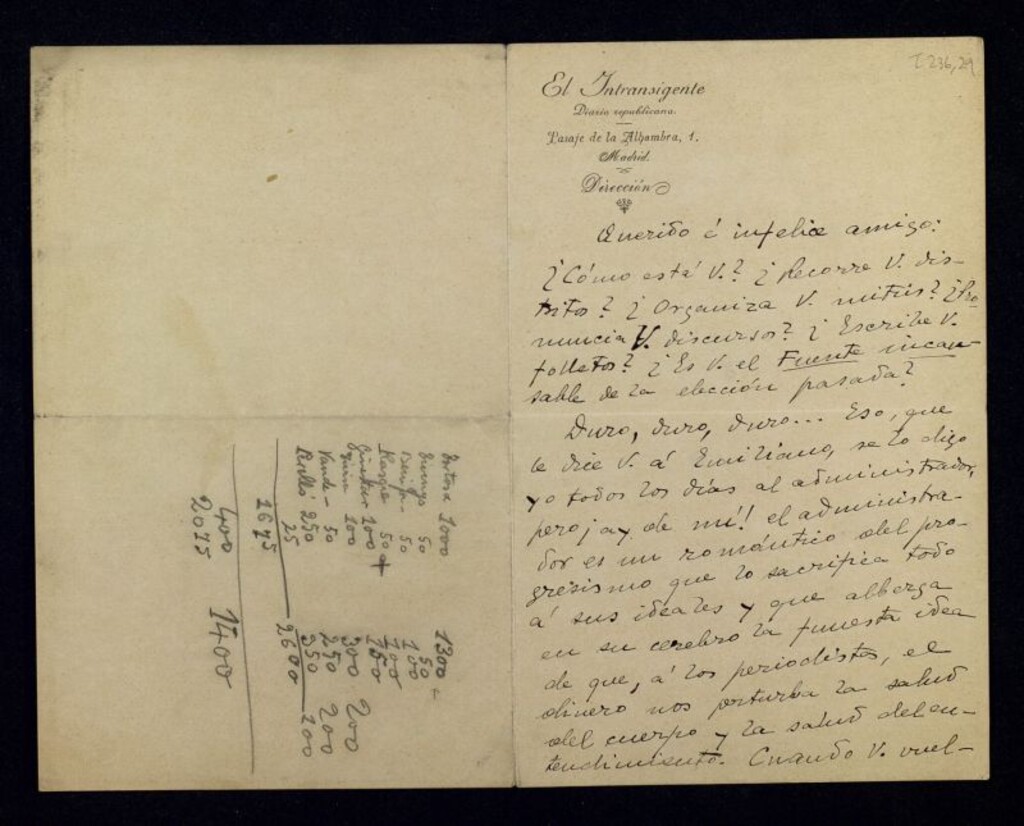 T. 236, 29
El Intransigente
Diario republicano.
Pasaje de la Alhambra, 1.
Madrid.
Dirección
Querido é infelice amigo:
¿Cómo está V.? ¿Recorre V. dis-
tritos? ¿Organiza V. mitins? ¿Pro-
nuncia V. discursos? ¿Escribe V.
folletos? ¿Es V. el Fuente incan-
sable de la elección pasada?
Duro, duro, duro... Eso, que
le dice V. á Emiliano, se lo digo
yo todos los días al administrador,
pero ¡ay de mí!! el administra-
dor es un romántico del pro-
gresismo que lo sacrifica todo
á sus ideales y que alberga
en su cerebro la funesta idea
de que, á los periodistas, el
dinero nos perturba la salud
del cuerpo y la salud del en-
tendimiento. Cuando V. vuel-
1000
50
50
50 +
100
100
Vande- 50
250
25
1675
400
2075
1300
50
100
100
150
300 200
250 200
350
2600 200
1400